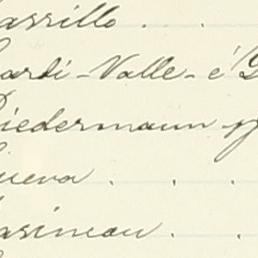 arrillo . .
ardi-Valle-é
iedermann
ueva . . .
asineau . .